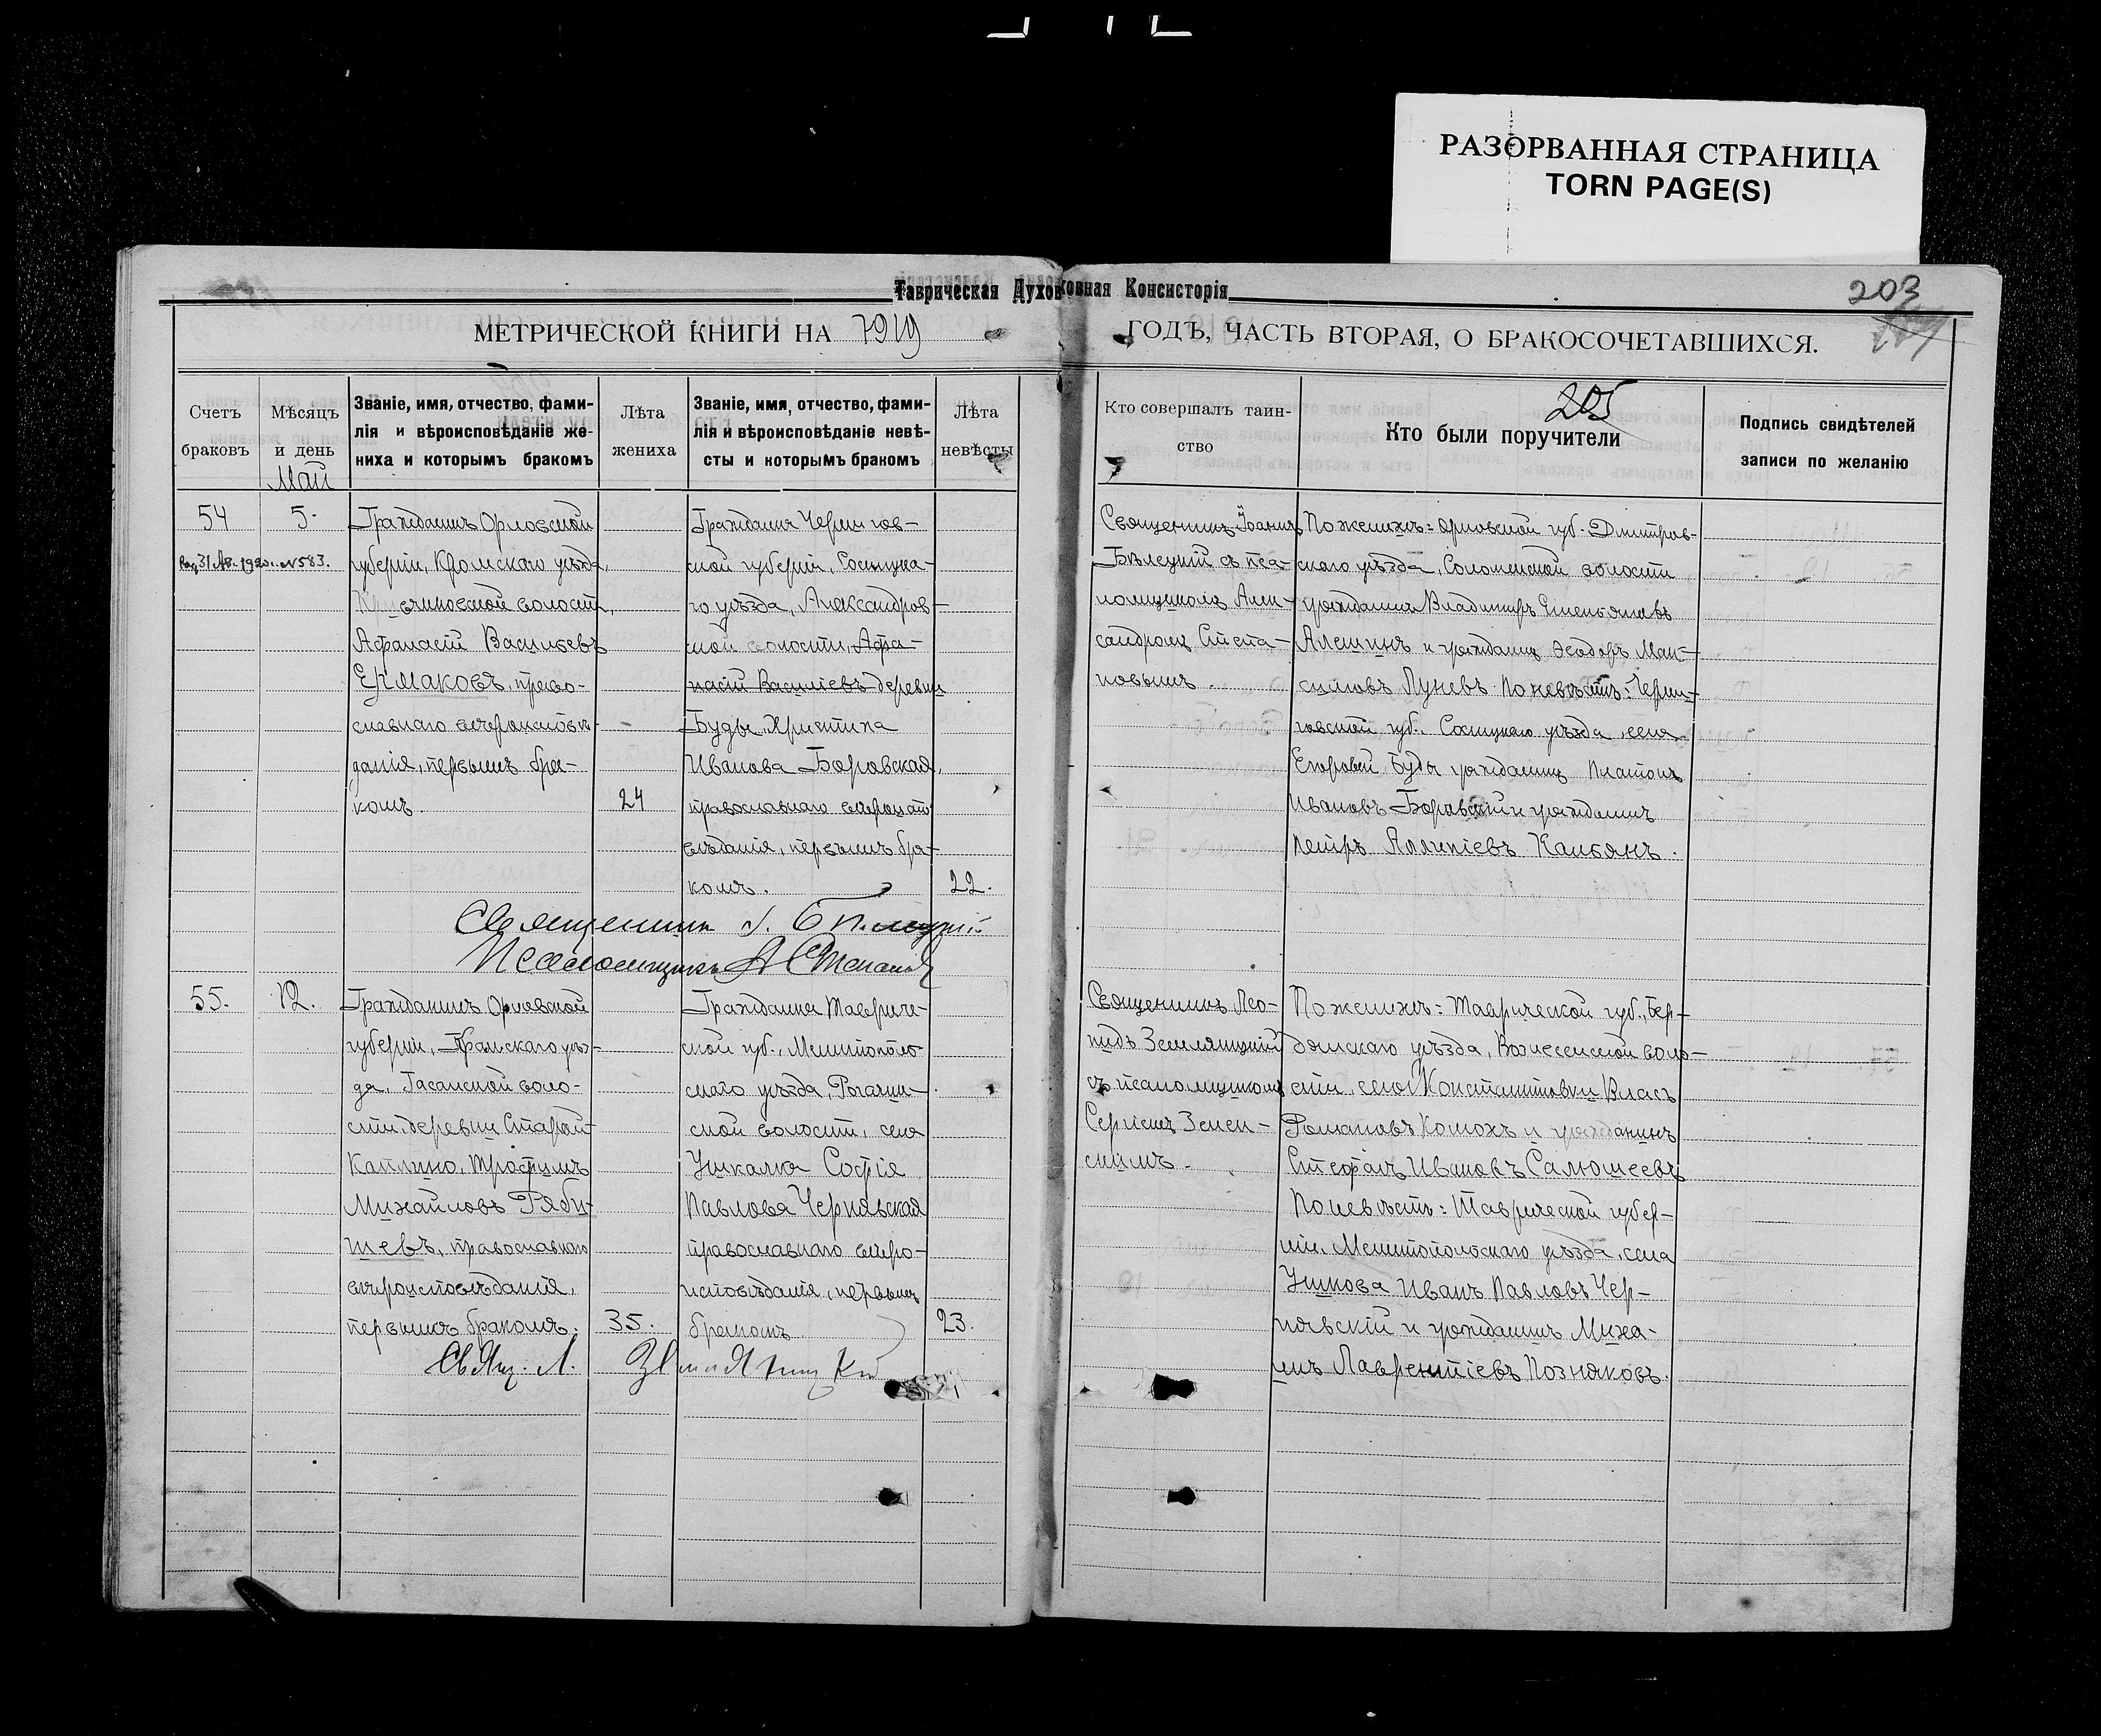 РАЗОРВАННАЯ СТРАНИЦА
TORN PAGE(S)
Таврическая Духовная Консисторія
203
МЕТРИЧЕСКОЙ КНИГИ НА 1919
ГОДЪ, ЧАСТЬ ВТОРАЯ, О БРАКОСОЧЕТАВШИХСЯ.
205
Счетъ
браковъ
Мѣсяцъ
и день
Май
Званіе, имя, отчество, фами-
лія и вѣроисповѣданіе же-
ниха и которымъ бракомъ
Лѣта
жениха
Званіе, имя, отчество, фами-
лія и вѣроисповѣданіе невѣ-
сты и которымъ бракомъ
Лѣта
невѣсты
Кто совершалъ таин-
ство
Кто были поручители
Подпись свидѣтелей
записи по желанію
54
31 1920. №583.
5.
Гражданинъ Орловской
губерніи, Кромскаго уѣзда,
волости,
Афанасій Васильевъ
Ермаковъ, право-
славнаго вѣроисповѣ-
данія, первымъ бра-
комъ.
24
Гражданка Чернигов-
ской губерніи, Сосницка-
го уѣзда, Александров-
ской волости, Афа-
насій Василіевъ деревни
Буды, Христина
Иванова Боровская,
православнаго вѣроиспо-
вѣданія, первымъ бра-
комъ.
22.
Священникъ Іоаннъ
Бѣлецкій съ пса-
ломщикомъ Алек-
сандромъ Степа-
новымъ
По женихѣ: Орловской губ. Дмитров-
скаго уѣзда, Соломенской волости
гражданинъ Владиміръ
Алешинъ и гражданинъ Ѳеодоръ Мак-
симовъ Луневъ. По невѣстѣ: Черни-
говской губ. Сосницкаго уѣзда, села
Егоровой Буды гражданинъ Платонъ
Ивановъ Боровскій и гражданинъ
Петръ Алипіевъ
Священникъ І. Бѣлецкій
Псаломщикъ А Степановъ
55.
12.
Гражданинъ Орловской
губерніи, Кромскаго уѣз-
да, Гостомской воло-
сти, деревни Старой
Каплино, Трофимъ
Михайловъ Ряби-
шевъ, православнаго
вѣроисповѣданія,
первымъ бракомъ.
35.
Гражданка Тавриче-
ской губ., Мелитополь-
скаго уѣзда, Рогачин-
ской волости, села
Ушкалка Софія
Павлова Чернявская
православнаго вѣро-
исповѣданія, первымъ
бракомъ.
23.
Священникъ Лео-
нидъ Земляницкій
съ псаломщикомъ
Сергіемъ
По женихѣ: Таврической губ., Бер-
дянскаго уѣзда, Вознесенской воло-
сти, села Константиновки Власъ
Романовъ Комохъ и гражданинъ
Стефанъ Ивановъ
По невѣстѣ: Таврической губер-
ніи, Мелитопольскаго уѣзда, села
Ушкова Иванъ Павловъ Чер-
нявскій и гражданинъ Миха-
илъ Лаврентіевъ Позняковъ.
Свящ. Л. Земляницкій